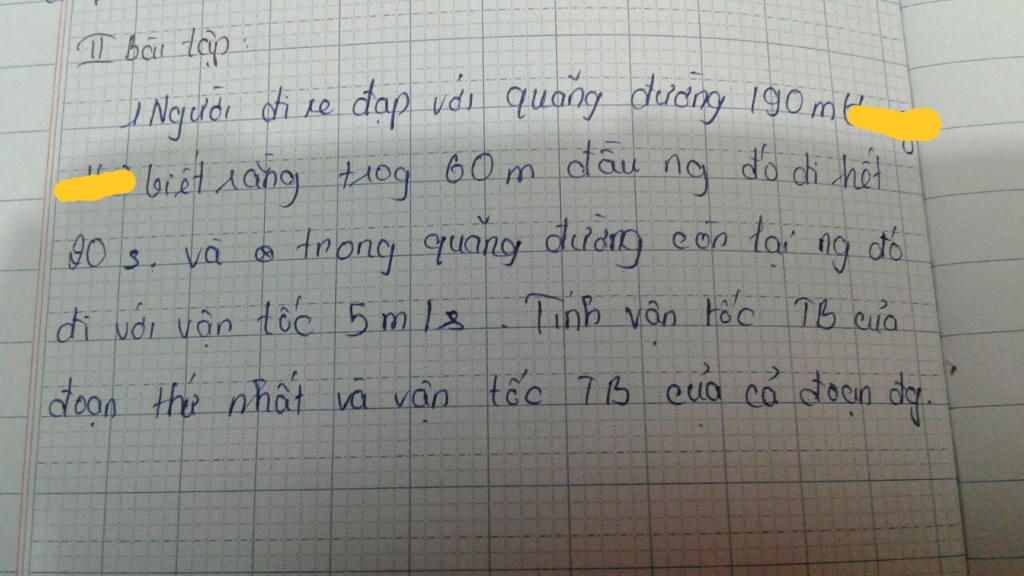 II Bài tập:
1 Người đi xe đạp với quãng đường 190m
biết rằng trog 60m đầu ng đó đi hết
90 s. và trong quãng đường còn lại ng đó
đi với vận tốc 5m/s. Tính vận tốc TB của
đoạn thứ nhất và vận tốc TB của cả đoạn đg.